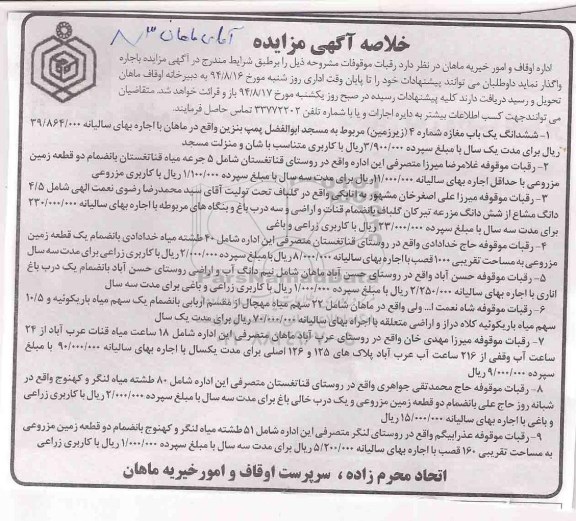 آقای ماهان ۸/۳
خلاصه آگهی مزایده
اداره اوقاف و امور خیریه ماهان در نظر دارد رقبات موقوفات مشروحه ذیل را برطبق شرایط مندرج در آگهی مزایده باجاره
واگذار نماید داوطلبان می توانند پیشنهادات خود را تا پایان وقت اداری روز شنبه مورخ ۹۴/۸/۱۶ به دبیرخانه اوقاف ماهان
تحویل و رسید دریافت دارند کلیه پیشنهادات رسیده در صبح روز یکشنبه مورخ ۹۴/۸/۱۷ باز و قرائت خواهد شد. متقاضیان
می توانندجهت کسب اطلاعات بیشتر به دایره اجارات و یا با شماره تلفن ۳۳۷۷۲۲۰۲ تماس حاصل فرمایند.
۱- ششدانگ یک باب مغازه شماره ۴ (زیرزمین) مربوط به مسجد ابوالفضل پمپ بنزین واقع در ماهان با اجاره بهای سالیانه ۳۹/۸۶۴/۰۰۰
ریال برای مدت یک سال با مبلغ سپرده ۳/۹۰۰/۰۰۰ریال با کاربری متناسب با شان و منزلت مسجد
۲- رقبات موقوفه غلامرضا میرزا متصرفی این اداره واقع در روستای قناتغستان شامل ۵ جرعه میاه قناتغستان بانضمام دو قطعه زمین
مزروعی با حداقل اجاره بهای سالیانه ۱۱/۰۰۰/۰۰۰ریال برای مدت سه سال با مبلغ سپرده ۱/۱۰۰/۰۰۰ ریال با کاربری مزروعی
۳- رقبات موقوفه میرزا علی اصغرخان مشهور به اتابکی واقع در گلباف تحت تولیت آقای سید محمدرضا رضوی نعمت الهی شامل ۴/۵
دانگ مشاع از شش دانگ مزرعه تیرکان گلباف بانضمام قنات و اراضی و سه درب باغ و بنگاه های مربوطه با اجاره بهای سالیانه ۲۳۰/۰۰۰/۰۰۰
برای مدت سه سال با مبلغ سپرده ۲۳/۰۰۰/۰۰۰ ریال با کاربری زراعی و باغی
۴- رقبات موقوفه حاج خدادادی واقع در روستای قناتغستان متصرفی این اداره شامل ۴۰ طشته میاه خدادادی بانضمام یک قطعه زمین
مزروعی به مساحت تقریبی ۱۰۰۰ قصب با اجاره بهای سالیانه ۸/۰۰۰/۰۰۰ ریال با مبلغ سپرده ۲/۰۰۰/۰۰۰ ریال با کاربری زراعی برای مدت سه سال
۵- رقبات موقوفه حسن آباد واقع در روستای حسن آباد ماهان شامل نیم دانگ آب و اراضی روستای حسن آباد بانضمام یک درب باغ
اناری با اجاره بهای سالیانه ۲/۲۵۰/۰۰۰ ریال با مبلغ سپرده ۱/۰۰۰/۰۰۰ ریال با کاربری زراعی و باغی برای مدت سه سال
۶- رقبات موقوفه شاه نعمت ا... ولی واقع در ماهان شامل ۲۲ سهم میاه مهچال از مقسم اربابی بانضمام یک سهم میاه باریکوئیه و ۱۰/۵
سهم میاه باریکوئیه کلاه دراز و اراضی متعلقه با اجراه بهای سالیانه ۷۰/۰۰۰/۰۰۰ ریال برای مدت یک سال
۷- رقبات موقوفه میرزا مهدی خان واقع در روستای عرب آباد ماهان متصرفی این اداره شامل ۱۸ ساعت میاه قنات عرب آباد از ۲۴
ساعت آب وقفی از ۲۱۶ ساعت آب عرب آباد پلاک های ۱۲۵ و ۱۲۶ اصلی برای مدت یکسال با اجاره بهای سالیانه ۹۰/۰۰۰/۰۰۰ با مبلغ
سپرده ۹/۰۰۰/۰۰۰ ریال
۸- رقبات موقوفه حاج محمدتقی جواهری واقع در روستای قناتغستان متصرفی این اداره شامل ۸۰ طشته میاه لنگر و کهنوج واقع در
شبانه روز حاج علی بانضمام دو قطعه زمین مزروعی و یک درب خالی باغ برای مدت سه سال با مبلغ سپرده ۲/۰۰۰/۰۰۰ ریال با کاربری زراعی
و باغی با اجاره بهای سالیانه ۱۵/۰۰۰/۰۰۰ ریال
۹- رقبات موقوفه عذرابیگم واقع در روستای لنگر متصرفی این اداره شامل ۵۱ طشته میاه لنگر و کهنوج بانضمام دو قطعه زمین مزروعی
به مساحت تقریبی ۱۶۰ قصب با اجاره بهای سالیانه ۵/۲۰۰/۰۰۰ ریال برای مدت سه سال با مبلغ سپرده ۱/۰۰۰/۰۰۰ ریال با کاربری زراعی
اتحاد محرم زاده ، سرپرست اوقاف و امورخیریه ماهان